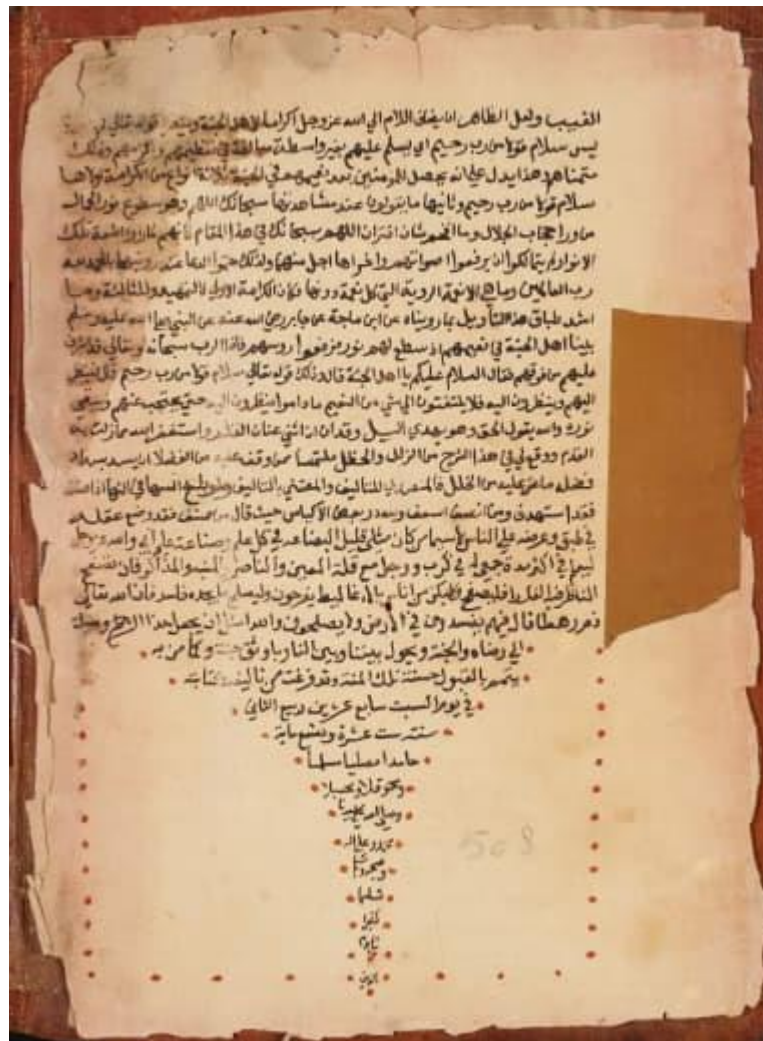 الغيب ولعل الظاهر ان يضاف اللام الى الله عز وجل اكراما لاهل الجنة قوله تعالى في
يس سلام قولا من رب رحيم اي يسلم عليهم بغير واسطة مبالغة في تعظيمهم واكرامهم وذلك
متمناهم هذا يدل على انه يحصل للمؤمنين بعد نعيمهم في الجنة ثلاثة انواع من الكرامة اولاها
سلام قولا من رب رحيم وثانيها ما يقولون عند مشاهدتها سبحانك اللهم وهو سطوع نور الجمال
من وراء حجاب الجلال وما افخم شان اقتران اللهم سبحانك في هذا المقام كانهم لما راوا اشعة تلك
الانوار لم يتمالكوا ان يرفعوا اصواتهم واخراها اجل منهما ولذلك ختموا الدعا عند رؤيتها بالحمد لله
رب العالمين وما هي الا نعمة الروية التي كل نعمة دونها فكان الكرامة الاولى كالتمهيد للثالثة وما
اشد طباق هذا التأويل بما رويناه عن ابن ماجة عن جابر رضي الله عنه عن النبي صلى الله عليه وسلم
بينا اهل الجنة في نعيمهم اذ سطع لهم نور فرفعوا روسهم فاذا الرب سبحانه وتعالى قد اشرف
عليهم من فوقهم فقال السلام عليكم يا اهل الجنة قال وذلك قوله تعالى سلام قولا من رب رحيم قال فينظر
اليهم وينظرون اليه فلا يلتفتون الى شي من النعيم ما داموا ينظرون اليه حتى يحتجب عنهم ويبقى
نوره والله يقول الحق وهو يهدي السبيل وقد ان ان اثني عنان القلم واستغفر الله مما زلت به
القدم ووقع لي في هذا الشرح من الزلل والخطل ملتمسا ممن وقف عليه من الفضلا ان يسد بسداد
فضله ما عثر عليه من الخلل فالمتصدي للتاليف والمعتني بالتاليف
فقد استهدف ومن حيث قال من صنف فقد وضع عقله
في طبق وعرضه على الناس لا سيما من كان مثلي قليل البضاعة في كل علم وصناعة على اني والله
في اكثر مدة في كرب ووجل مع قلة المعين والناصر والمنبه والمذاكر فان
الناظر فيه
قال فيهم يفسدون في الارض ولا يصلحون والله اسال ان يجعل هذا الشرح وسيلة
الى رضاه والجنة ويحول بيننا وبين النار باوثق جنة وكما من به
يتمم بالقبول حسنة تلك المنة وقد فرغت من تاليفه وكتابته
في يوم السبت سابع عشرين ربيع الثاني
سنة ست عشرة وتسع ماية
حامدا مصليا مسلما
ومحوقلا ومحسبلا
وصلى الله على سيدنا
محمد وعلى اله
وصحبه وسلم
تسليما
كثيرا